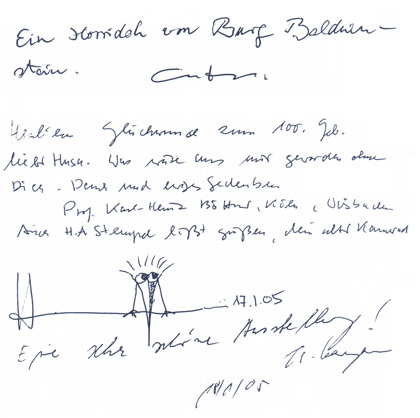 Ein Horridoh von Burg Balduin-
stein.
Herzlichen Glückwunsch zum 100. Geb.
lieber Hase. Was wäre aus mir geworden ohne
Dich. Dank und ewiges Gedenken
Prof. Karl-Heinz Köln, Wiesbaden
H.A Stempel läßt grüßen, dein alter Kamerad
17.1.05
Eine sehr schöne Ausstellung!
18/1/05